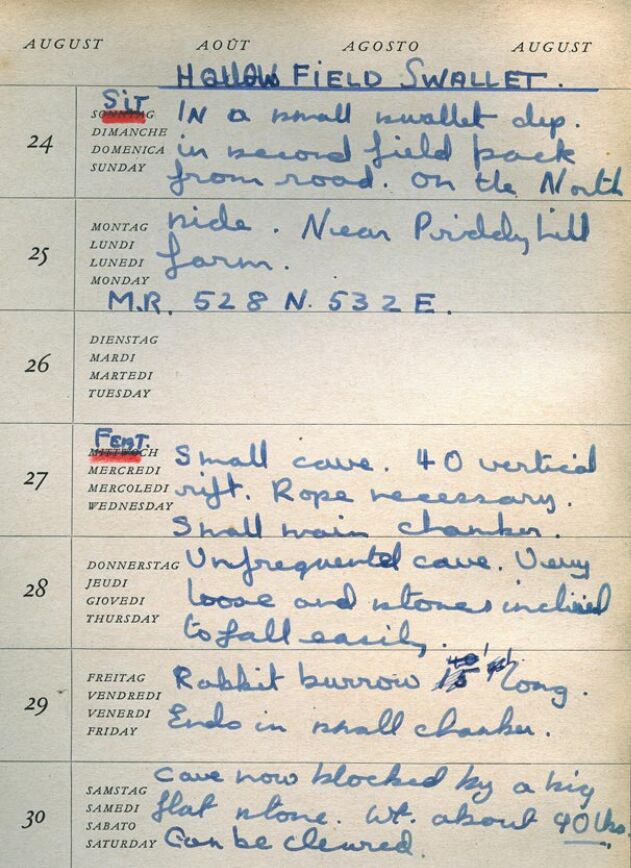 AUGUST AOÛT AGOSTO AUGUST
HOLLOW FIELD SWALLET.
SIT
SONNTAG
IN a small swallet dep.
24
DIMANCHE
DOMENICA
in second field back
SUNDAY
from road. on the North
25
MONTAG
side. Near Priddy hill
LUNDI
LUNEDI
farm.
MONDAY
M.R. 528 N. 532 E.
26
DIENSTAG
MARDI
MARTEDI
TUESDAY
FEAT.
27
MITTWOCH
Small cave. 40 vertical
MERCREDI
MERCOLEDI
rift. Rope necessary.
WEDNESDAY
Small main chamber.
28
DONNERSTAG
Unfrequented cave. Very
JEUDI
GIOVEDI
loose and stones inclined
THURSDAY
to fall easily.
29
FREITAG
Rabbit burrow 40' long.
VENDREDI
VENERDI
Ends in small chamber.
FRIDAY
cave now blocked by a big
30
SAMSTAG
SAMEDI
flat stone. Wt. about 90 lbs.
SABATO
SATURDAY
Can be cleared.